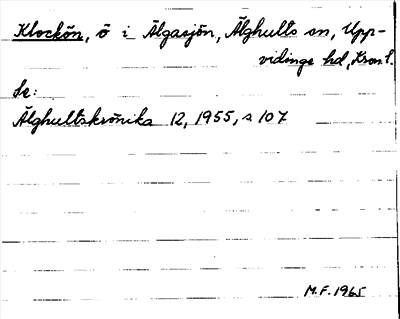 Klockön, ö i Älgasjön, Älghults sn, Upp-
vidinge hd, Kron.l.
Se:
Älghultskrönika 12, 1955, s 107
M.F. 1965